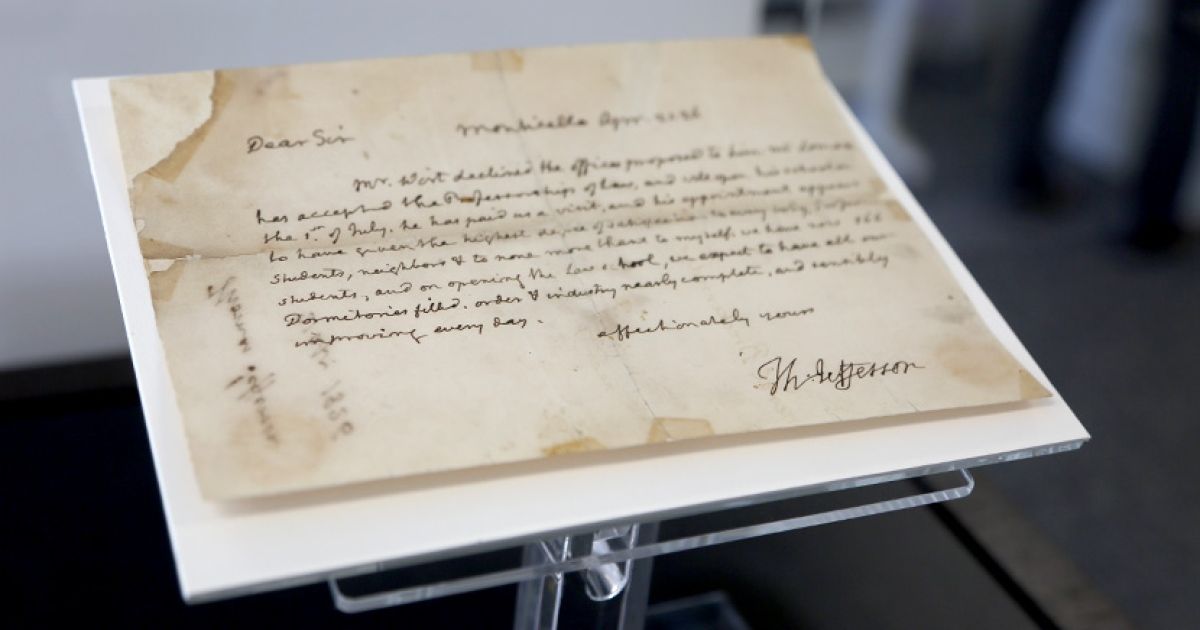 Dear Sir
Monticello Apr. 21. 26
Mr. Wirt declined the offices proposed to him. Mr Lomax
has accepted the Professorship of law, and will open his school on
the 1st. of July. he has paid us a visit, and his appointment appears
to have given the highest degree of satisfaction to every body, Professors
students, neighbors & to none more than to myself. we have now 166
students, and on opening the law school, we expect to have all our
Dormitories filled. order & industry nearly complete, and sensibly
improving every day.
affectionately yours
Th: Jefferson